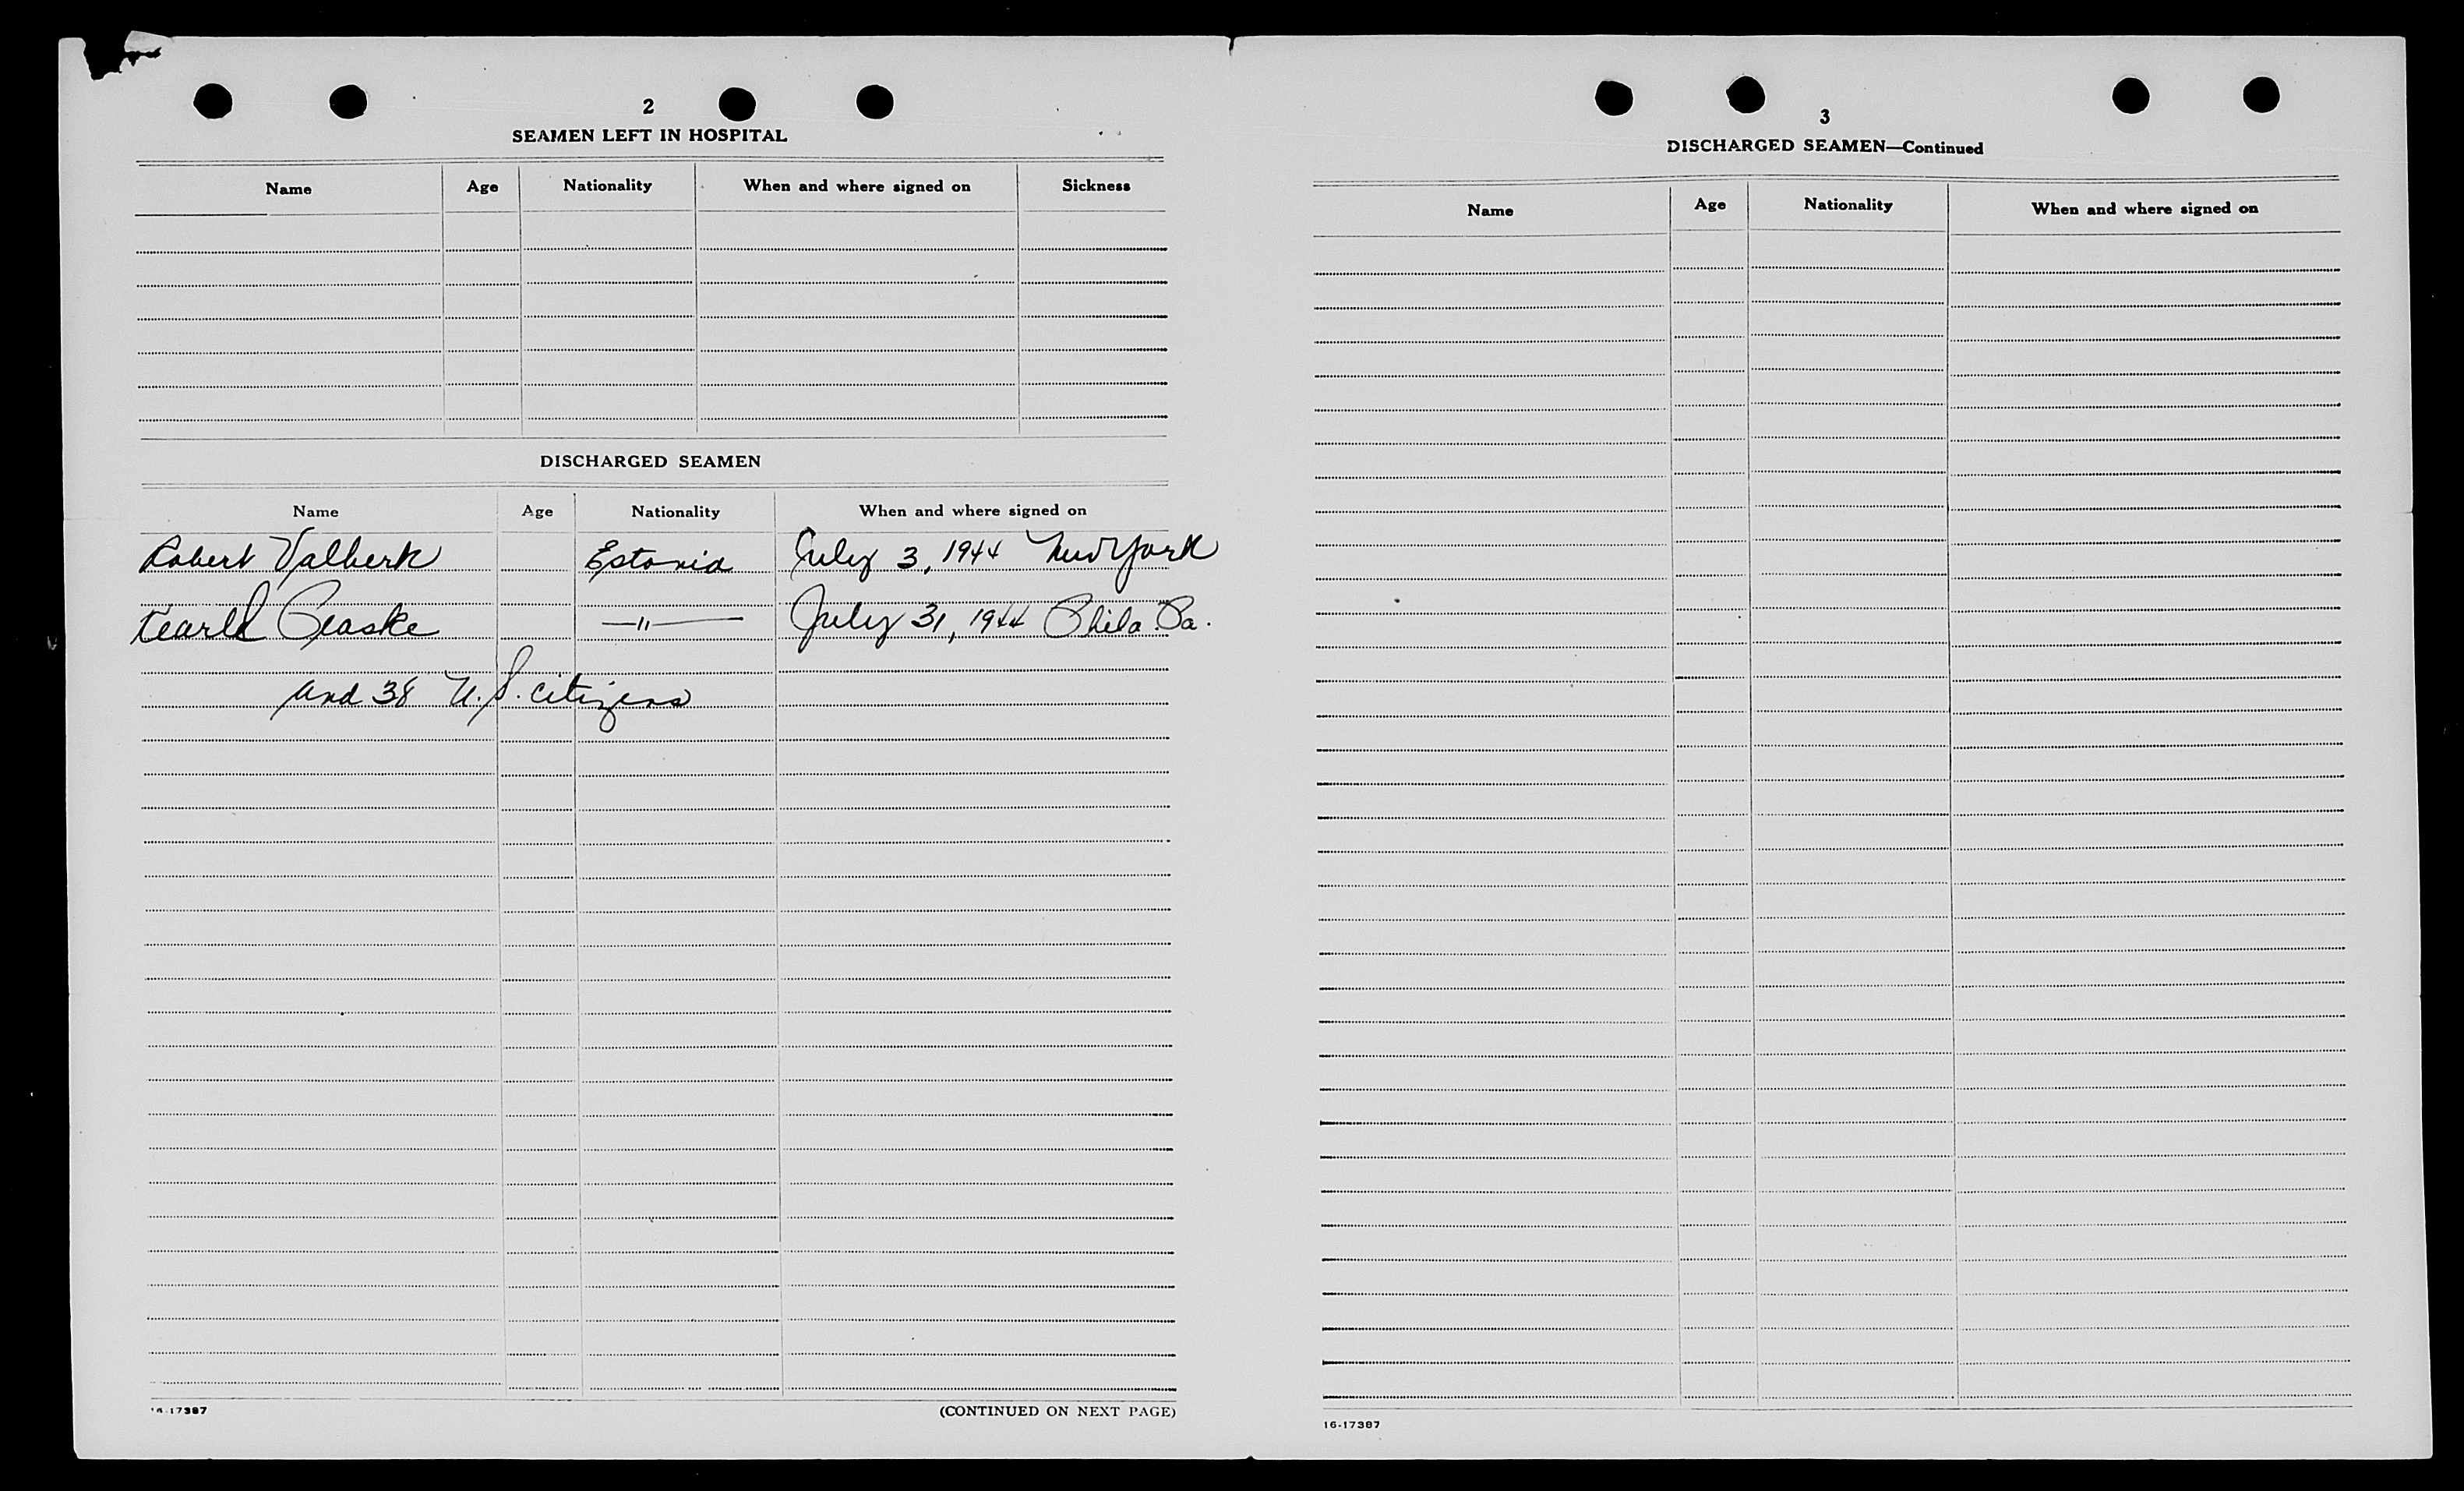 2
SEAMEN LEFT IN HOSPITAL
Name Age Nationality When and where signed on Sickness
DISCHARGED SEAMEN
Name Age Nationality When and where signed on
Robert Valberk Estonia July 3, 1944 New York
Peaske —〃— July 31, 1944 Phila. Pa.
and 38 U.S. citizens
16-17387
(CONTINUED ON NEXT PAGE)
3
DISCHARGED SEAMEN—Continued
Name Age Nationality When and where signed on
16-17387